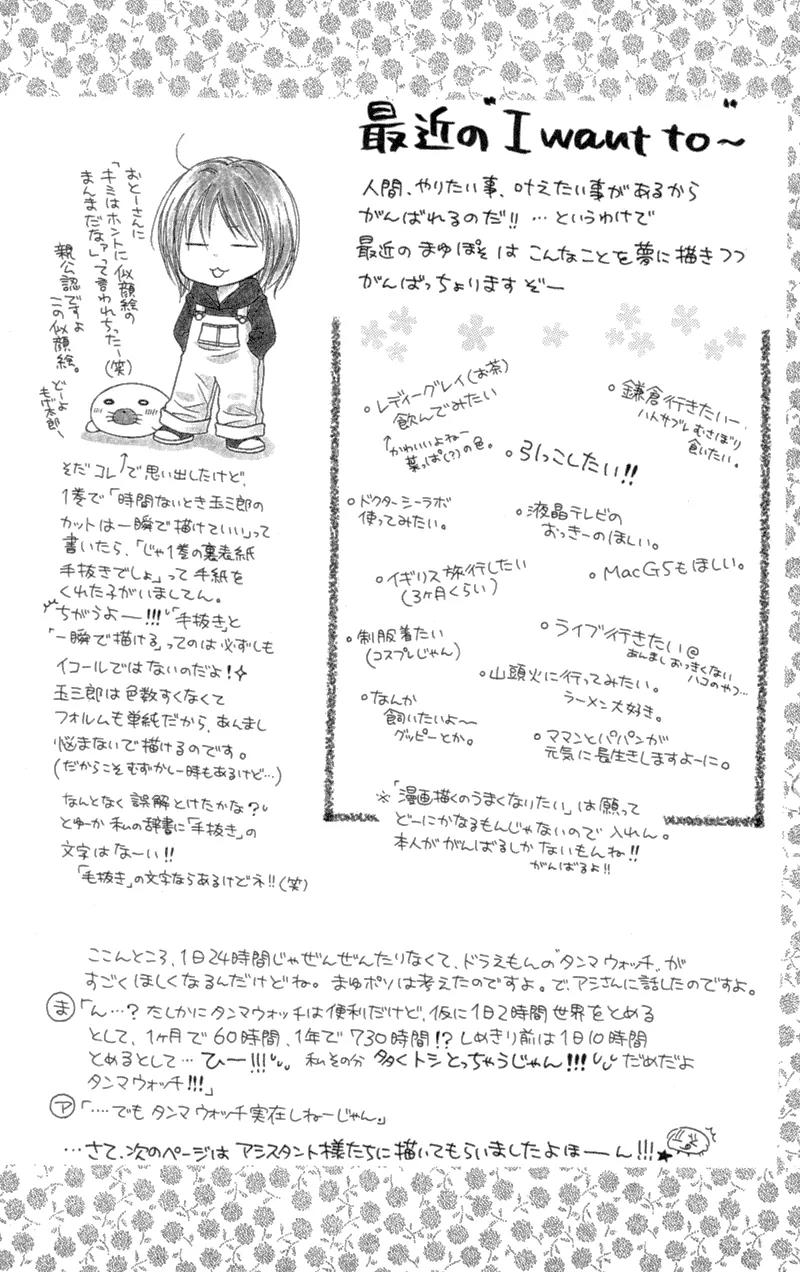 最近の"I want to"～
人間、やりたい事、叶えたい事があるから
がんばれるのだ!! …というわけで
最近の まゆぽそ は こんなことを夢に描きつつ
がんばっちょりますぞー
おとーさんに
「キミはホントに似顔絵の
まんまだなァ」って言われちったー(笑)
親公認ですよ
この似顔絵。
どーよ
もげ太郎〜
そだ コレ↑で思い出したけど、
1巻で「時間ないとき玉三郎の
カットは一瞬で描けていい」って
書いたら、「じゃ1巻の裏表紙
手抜きでしょ」って手紙を
くれた子がいましてん。
ちがうよー!!!「手抜き」と
「一瞬で描ける」ってのは必ずしも
イコールではないのだよ!
玉三郎は色数すくなくて
フォルムも単純だから、あんまし
悩まないで描けるのです。
(だからこそむずかしー時もあるけど…)
なんとなく誤解とけたかな?
とゆーか 私の辞書に「手抜き」の
文字はなーい!!
「毛抜き」の文字ならあるけどネ!!(笑)
。レディーグレイ(お茶)
飲んでみたい
↑かわいいよねー
葉っぱ(?)の色。
。鎌倉行きたいー
ハトサブレむさぼり
食いたい。
。引っこしたい!!
。ドクターシーラボ
使ってみたい。
。液晶テレビの
おっきーのほしい。
。イギリス旅行したい
(3ヶ月くらい)
。MacG5もほしい。
。制服着たい
(コスプレじゃん)
。ライブ行きたい@
あんましおっきくない
ハコのやつ…
。山頭火に行ってみたい。
ラーメン大好き。
。なんか
飼いたいよ〜
グッピーとか。
。ママンとパパンが
元気に長生きしますよーに。
※「漫画描くのうまくなりたい」は願って
どーにかなるもんじゃないので 入れん。
本人ががんばるしかないもんね!!
がんばるよ!!
ここんところ、1日24時間じゃぜんぜんたりなくて、ドラえもんの"タンマウォッチ"が
すごくほしくなるんだけどね。まゆポソは考えたのですよ。で、アシさんに話したのですよ。
ま「ん…? たしかにタンマウォッチは便利だけど、仮に1日2時間世界をとめる
として、1ヶ月で60時間、1年で730時間!? しめきり前は1日10時間
とめるとして…ひー!!! 私その分 多くトシとっちゃうじゃん!!! だめだよ
タンマウォッチ!!!」
ア「…でもタンマウォッチ実在しねーじゃん。」
…さて、次のページは アシスタント様たちに描いてもらいましたよほーん!!!★